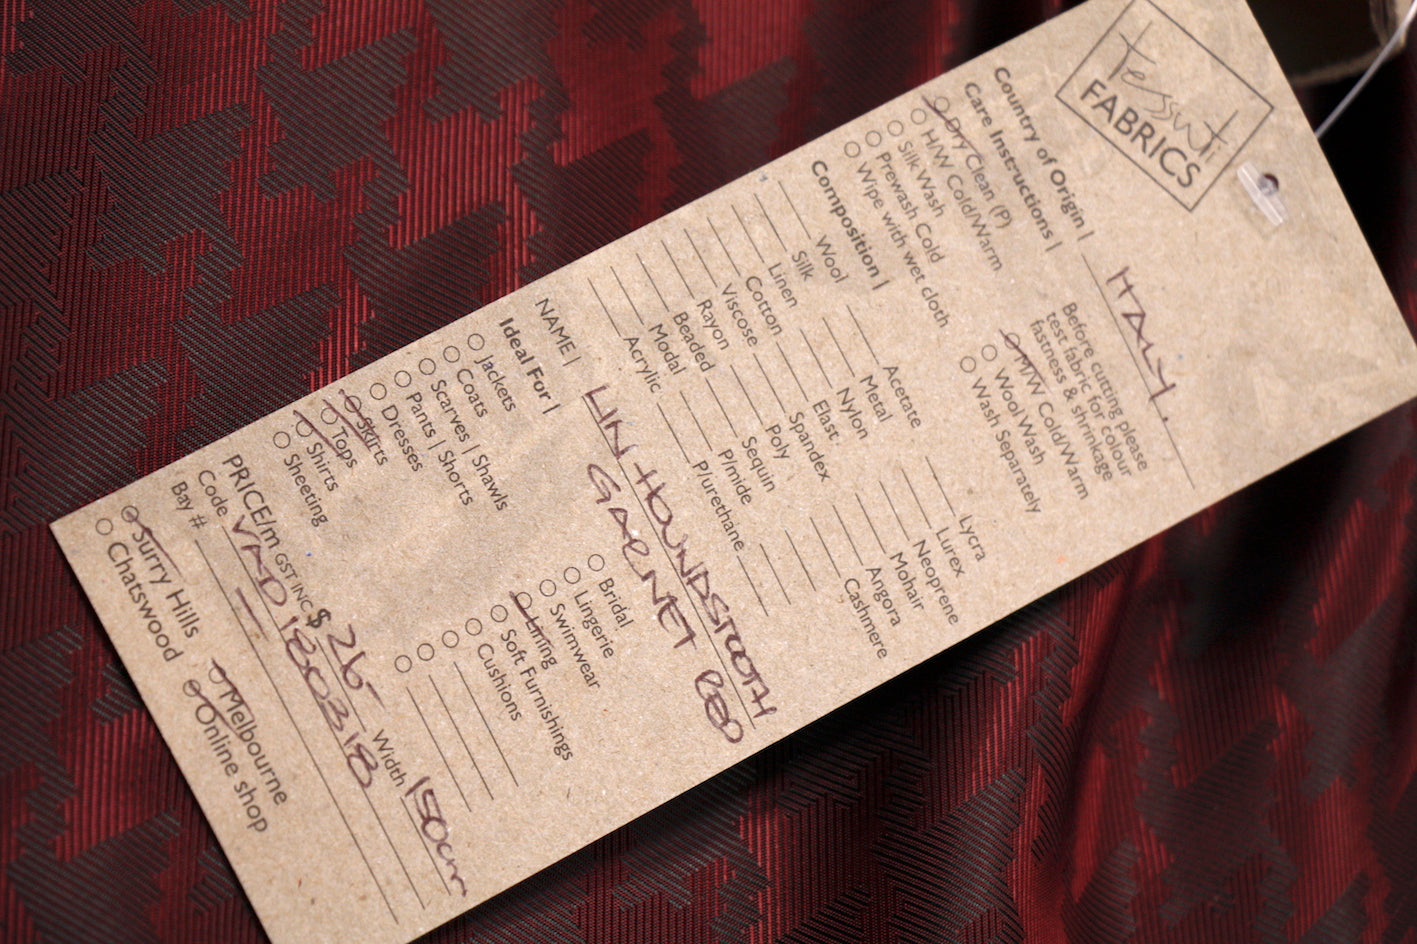 Tessuti
FABRICS
Country of Origin | ITALY.
Care Instructions |
Before cutting please
test fabric for colour
fastness & shrinkage
Dry Clean (P)
M/W Cold/Warm
H/W Cold/Warm
Wool Wash
Silk Wash
Wash Separately
Prewash Cold
Wipe with wet cloth
Composition |
Wool Acetate Lycra
Silk Metal Lurex
Linen Nylon Neoprene
Cotton Elast. Mohair
Viscose Spandex Angora
Rayon Poly Cashmere
Beaded Sequin
Modal P/mide
Acrylic P/urethane
NAME | LIN HOUNDSTOOTH
GARNET RED
Ideal For |
Jackets Bridal
Coats Lingerie
Scarves | Shawls Swimwear
Pants | Shorts Lining
Dresses Soft Furnishings
Skirts Cushions
Tops
Shirts
Sheeting
PRICE/m GST INC $ 26- Width 150cm
Code VAD1803318
Bay # —
Surry Hills Melbourne
Chatswood Online shop